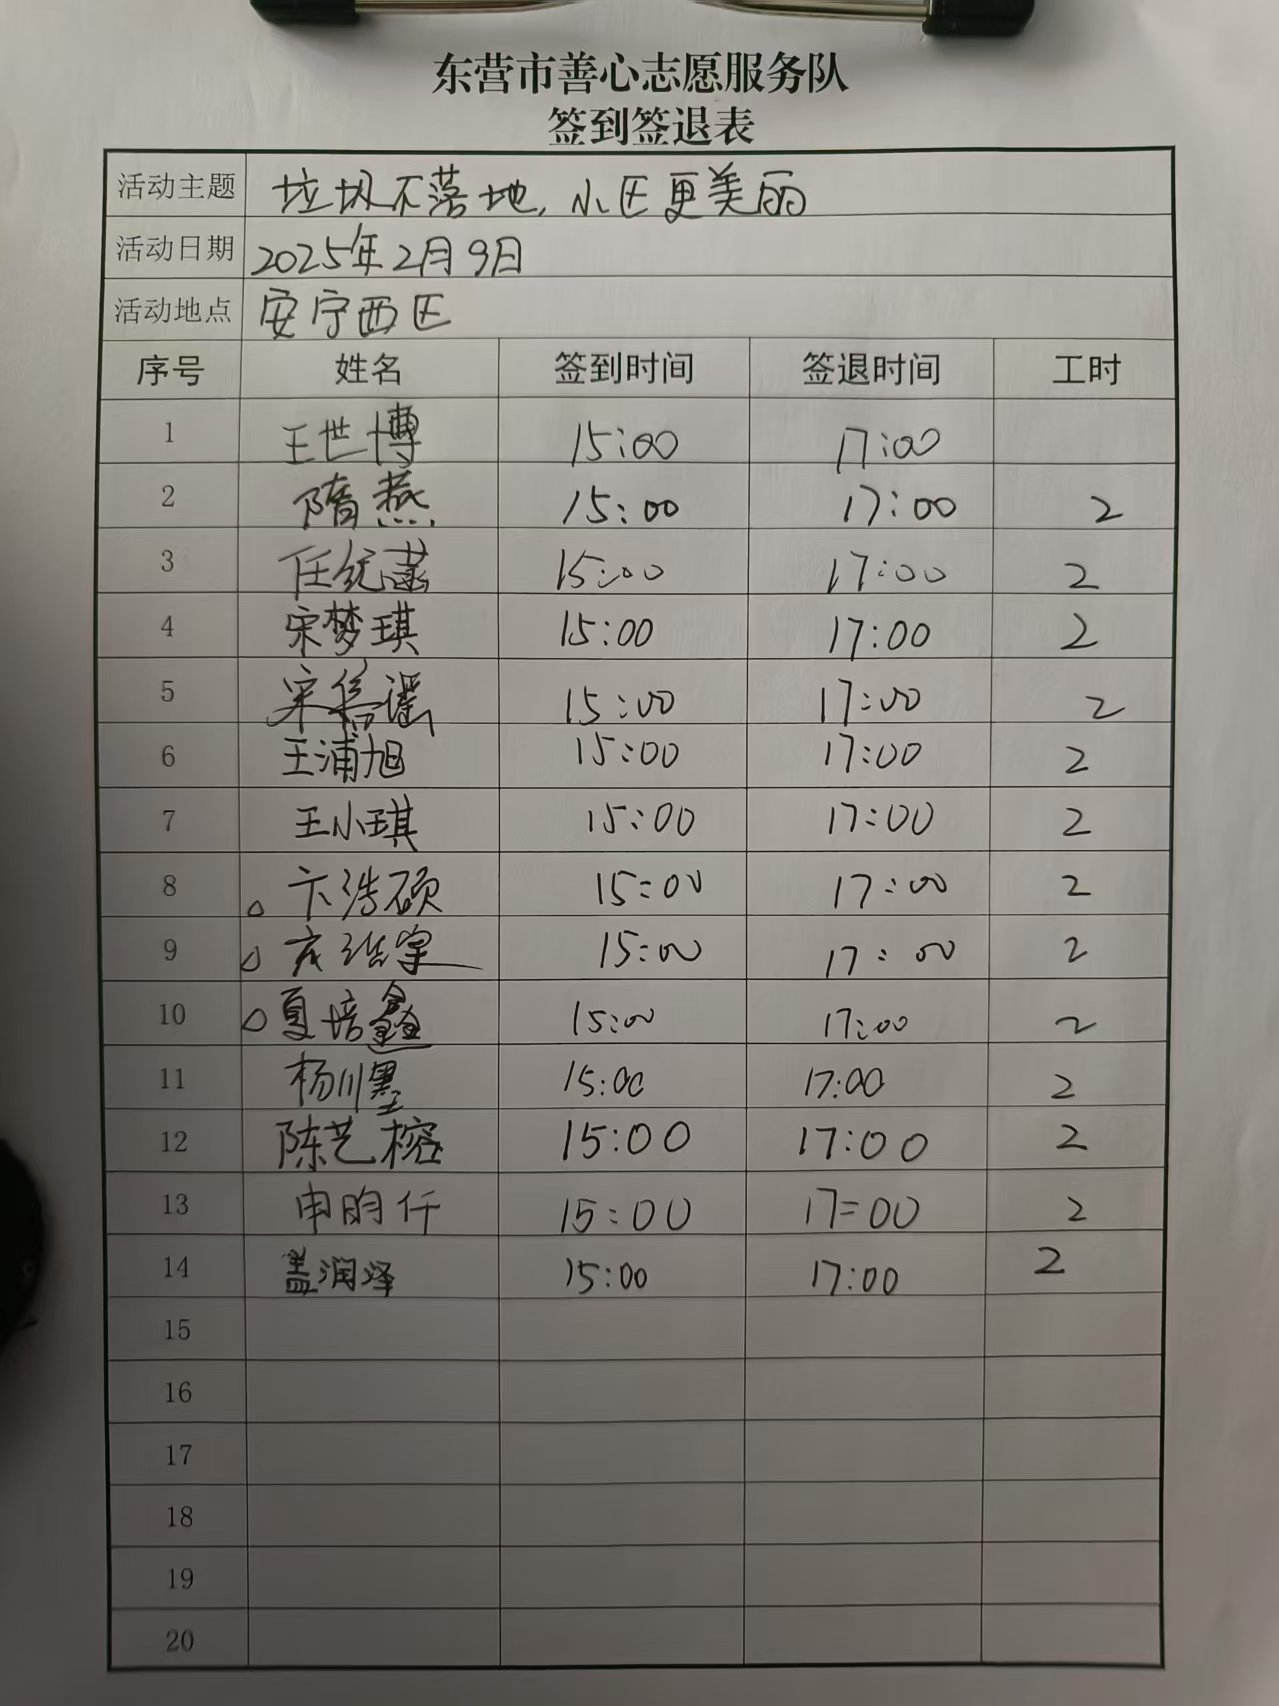 东营市善心志愿服务队
签到签退表
活动主题 垃圾不落地,小区更美丽
活动日期 2025年2月9日
活动地点 安宁西区
序号 姓名 签到时间 签退时间 工时
1 王世博 15:00 17:00
2 隋燕 15:00 17:00 2
3 任 15:00 17:00 2
4 宋梦琪 15:00 17:00 2
5 宋 谣 15:00 17:00 2
6 王浦旭 15:00 17:00 2
7 王小琪 15:00 17:00 2
8 卞浩硕 15:00 17:00 2
9 15:00 17:00 2
10 夏培鑫 15:00 17:00 2
11 杨川墨 15:00 17:00 2
12 陈艺榕 15:00 17:00 2
13 申昀仟 15:00 17:00 2
14 盖润泽 15:00 17:00 2
15
16
17
18
19
20